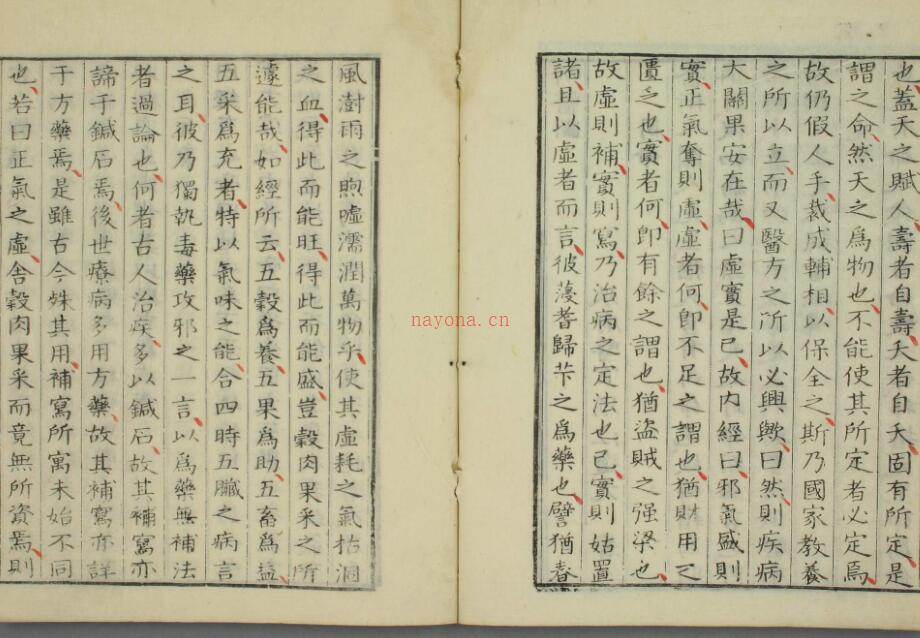 也蓋天之賦人壽者自壽夭者自夭固有所定是
謂之命然天之爲物也不能使其所定者必定焉
故仍假人手裁成輔相以保全之斯乃國家教養
之所以立而又醫方之所以必興歟曰然則疾病
大關果安在哉曰虛實是已故内經曰邪氣盛則
實正氣奪則虛虛者何卽不足之謂也猶財用之
匱乏也實者何卽有餘之謂也猶盜賊之强梁也
故虛則補實則寫乃治病之定法也已實則姑置
諸且以虛者而言彼蓡耆歸芐之爲藥也譬猶春
風澍雨之煦噓濡潤萬物乎使其虛耗之氣枯涸
之血得此而能旺得此而能盛豈穀肉果采之所
遽能哉如經所云五穀爲養五果爲助五畜爲益
五采爲充者特以氣味之能合四時五臟之病言
之耳彼乃獨執毒藥攻邪之一言以爲藥無補法
者過論也何者古人治疾多以鍼石故其補寫亦
諦于鍼石焉後世療病多用方藥故其補寫亦詳
于方藥焉是雖古今殊其用補寫所寓未始不同
也若曰正氣之虛舍穀肉果采而竟無所資焉則
nayona.cn